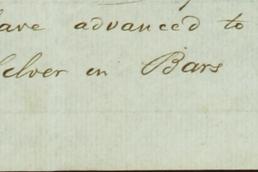 have advanced to
Silver in Bars